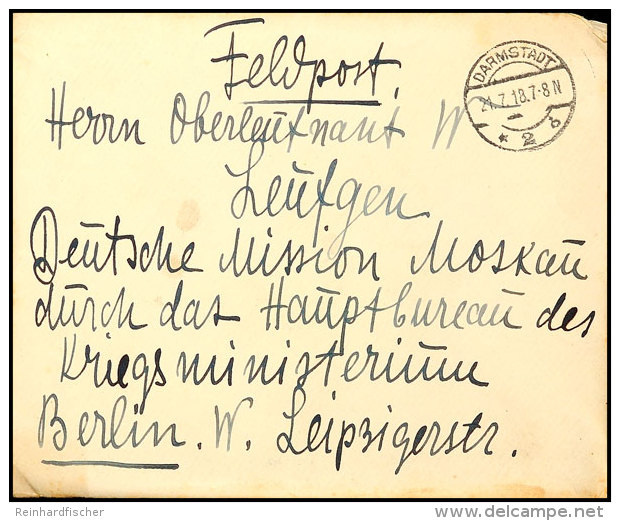 Feldpost.
DARMSTADT
21.7.18.7-8N
* 2 b
Herrn Oberleutnant W
Leutgen
Deutsche Mission Moskau
durch das Hauptbureau des
Kriegsministerium
Berlin. W. Leipzigerstr.
Reinhardfischer
delcampe.net